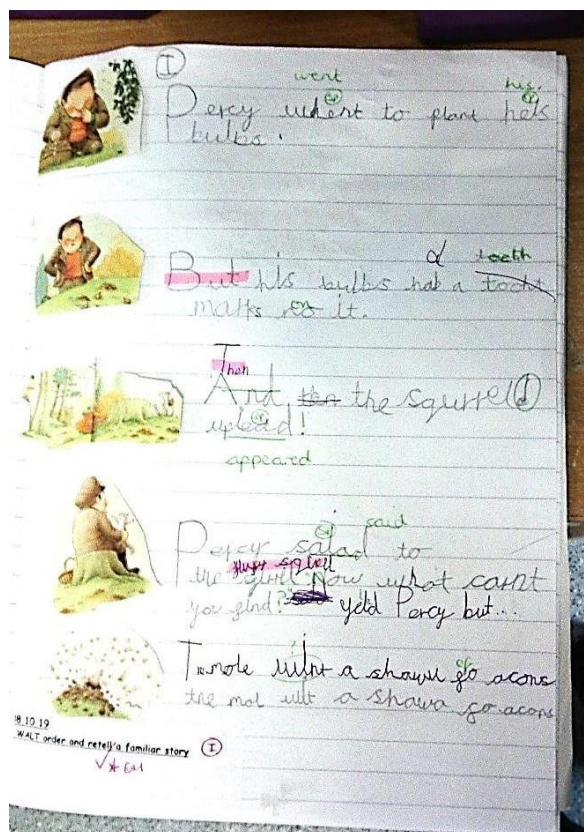 I
went his
Percy whent to plant heis
bulbs.
d teeth
But his bulbs had a
marks on it.
Then
And the squirrel
uplead!
appeared
said
Percy salad to
the now what carnt
you find? yeld Percy but...
The mole a shawu of acons
the mol wilt a shawa go acons
8.10.19
WALT order and retell a familiar story I